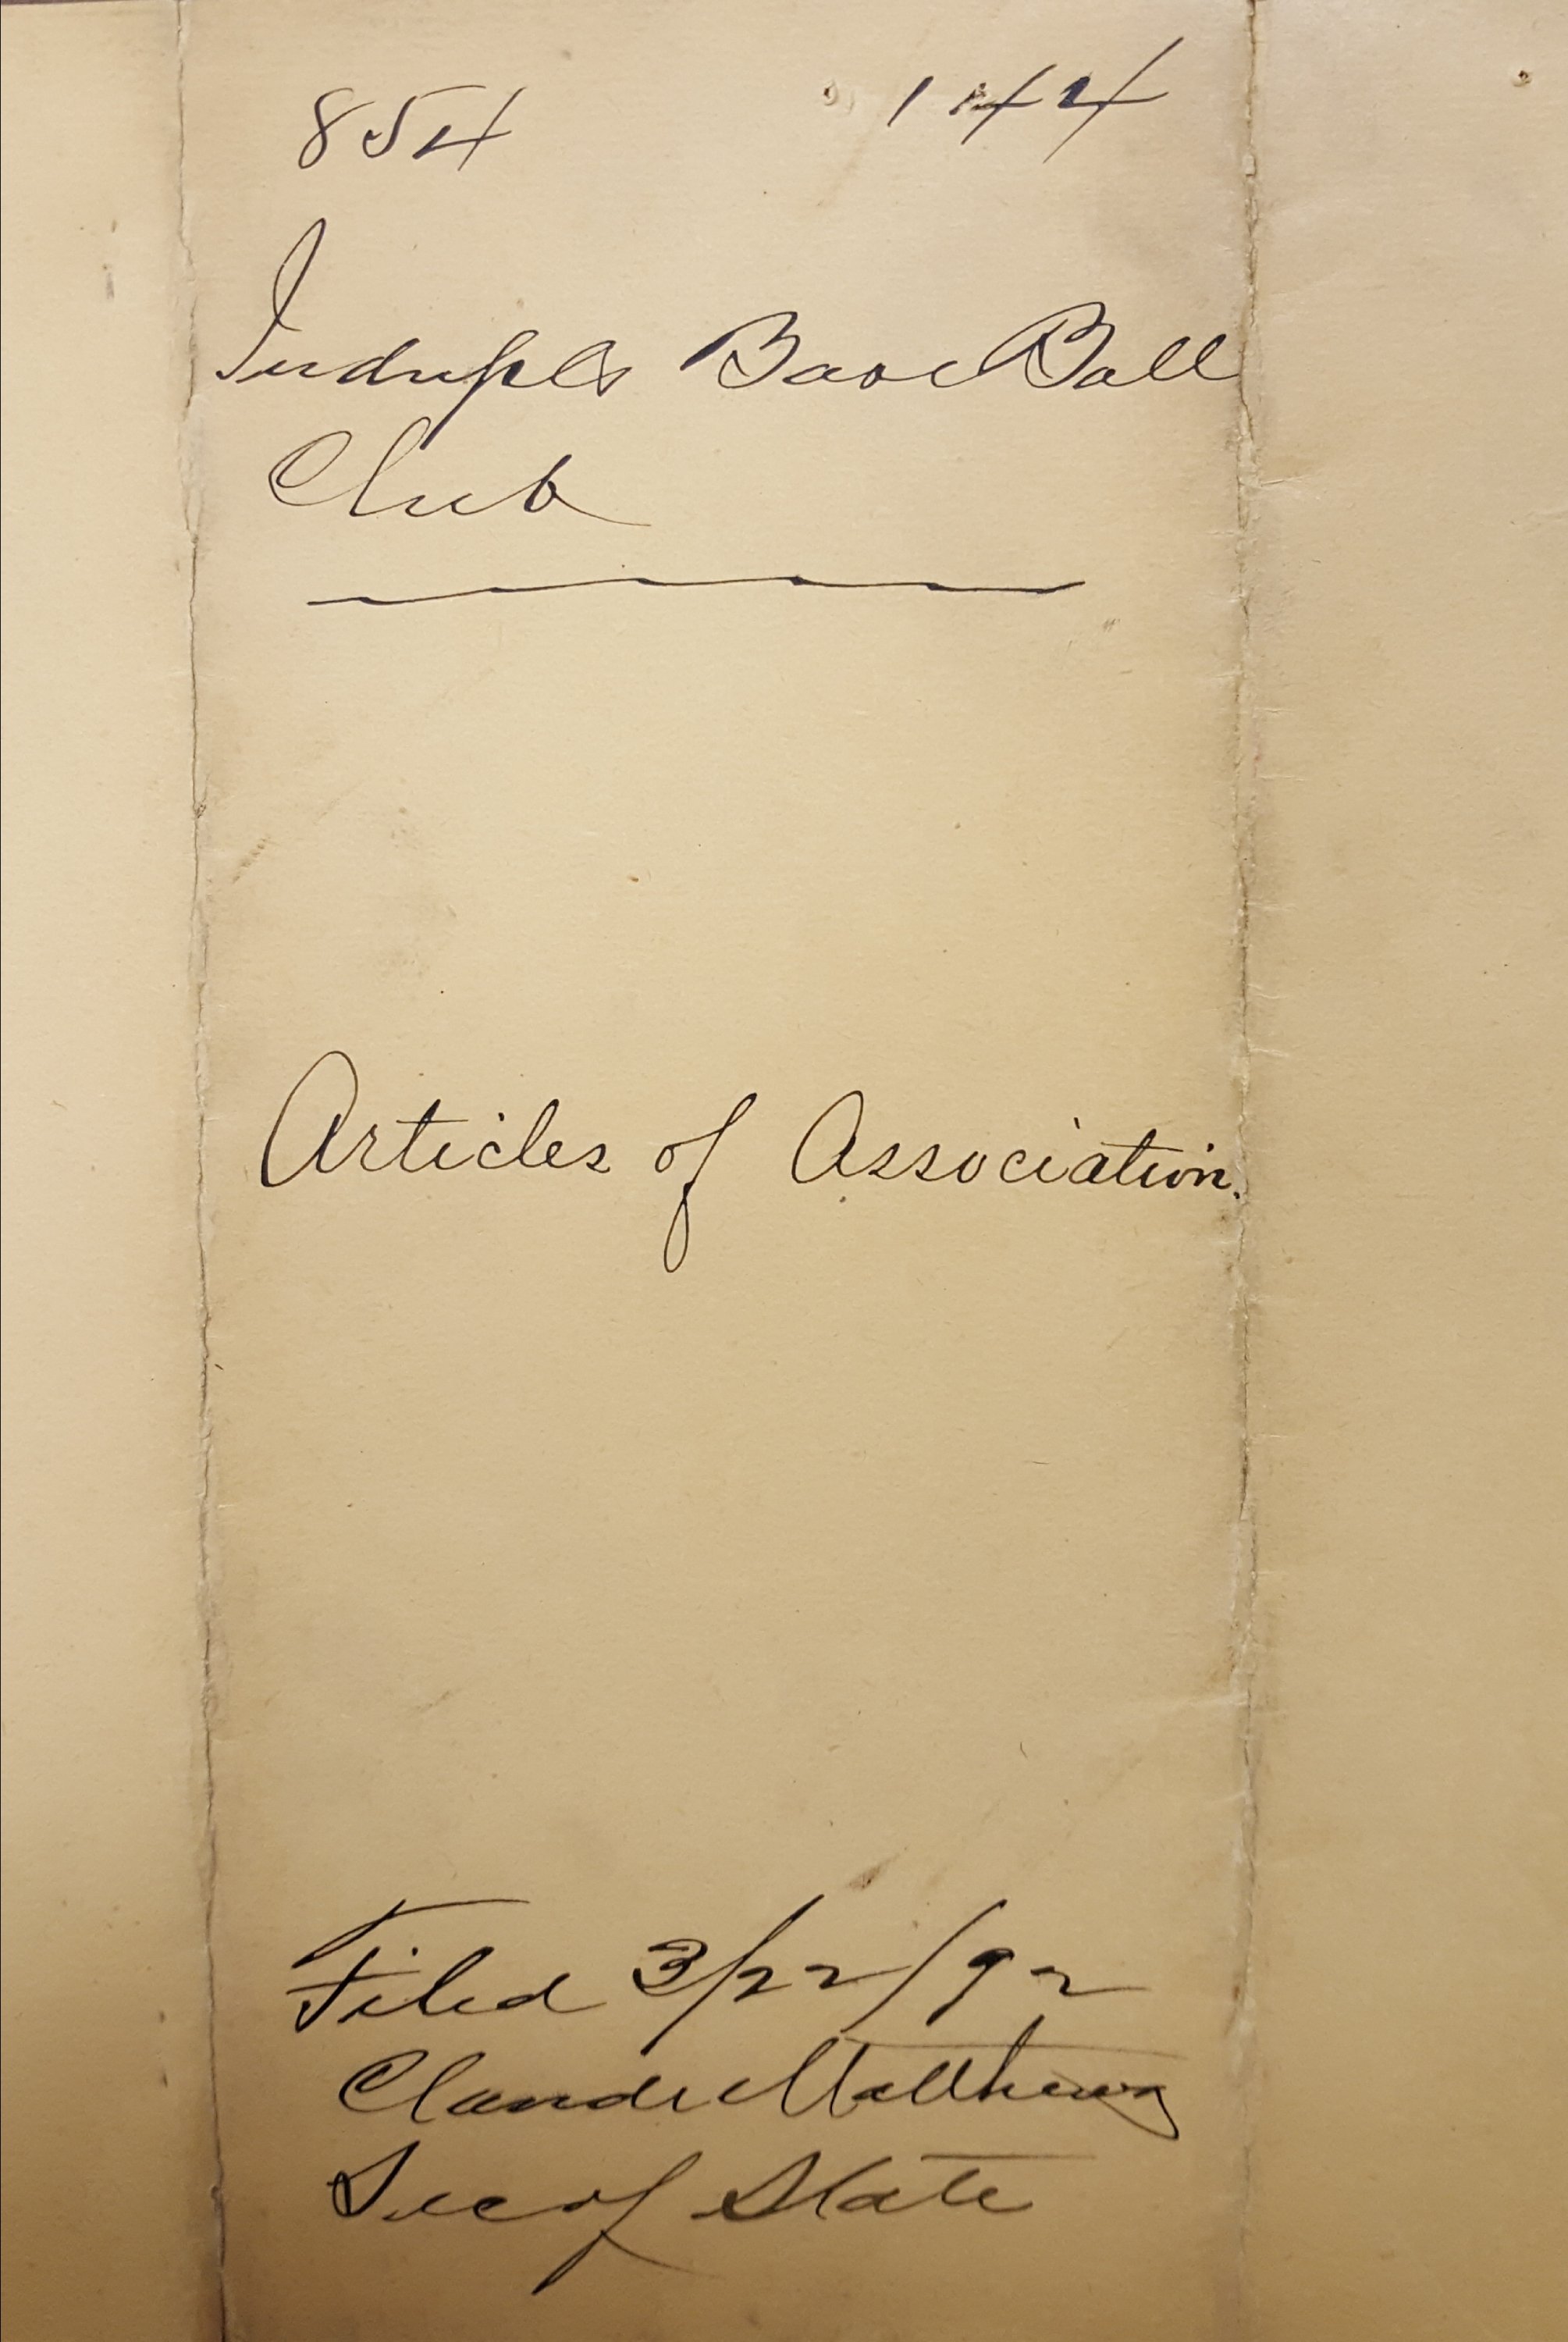 854 144
Indnpls Base Ball
Club
Articles of Association.
Filed 3/22/92
Claude Matthews
Sec of State